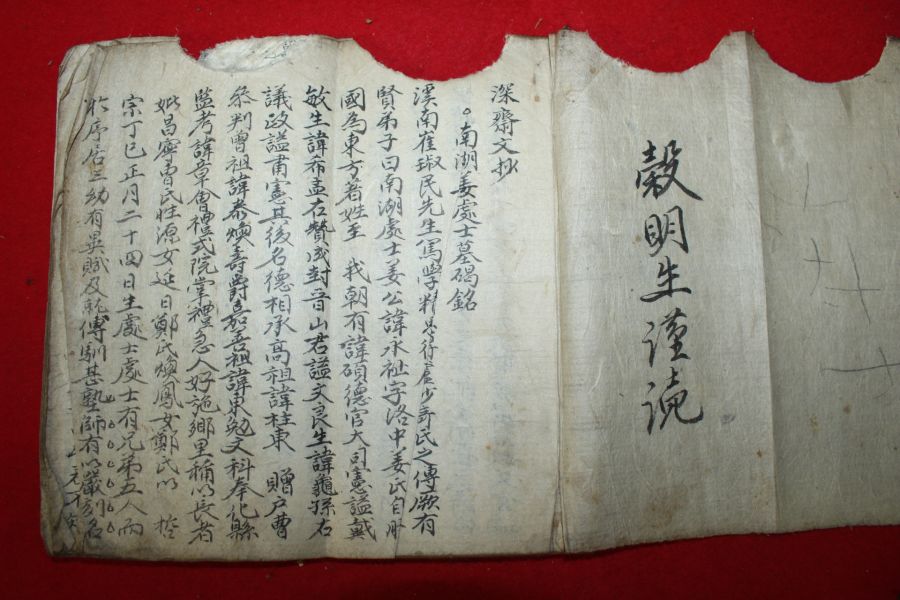 穀明生謹読
深齋文抄
南湖姜處士墓碣銘
溪南崔琡民先生篤學精思行處少許氏之傳厥有
賢弟子曰南湖處士姜公諱永祉字洛中姜氏自胖
國為東方著姓至 我朝有諱碩德官大司憲謚戴
敏生諱希孟右贊成封晋山君謚文良生諱龜孫右
議政謚肅憲其後名德相承高祖諱柱東 贈戶曹
叅判曾祖諱泰煥壽爵嘉善祖諱 勉文科奉化縣
監考諱章會禮式院掌禮急人好施鄉里稱以長者
妣昌寧曺氏 源女延日鄭氏煥鳳女鄭氏以 
宗丁巳正月二十四日生處士處士有兄弟五人而
於序居三幼有異 及就傅馴甚塾師有以嚴 名